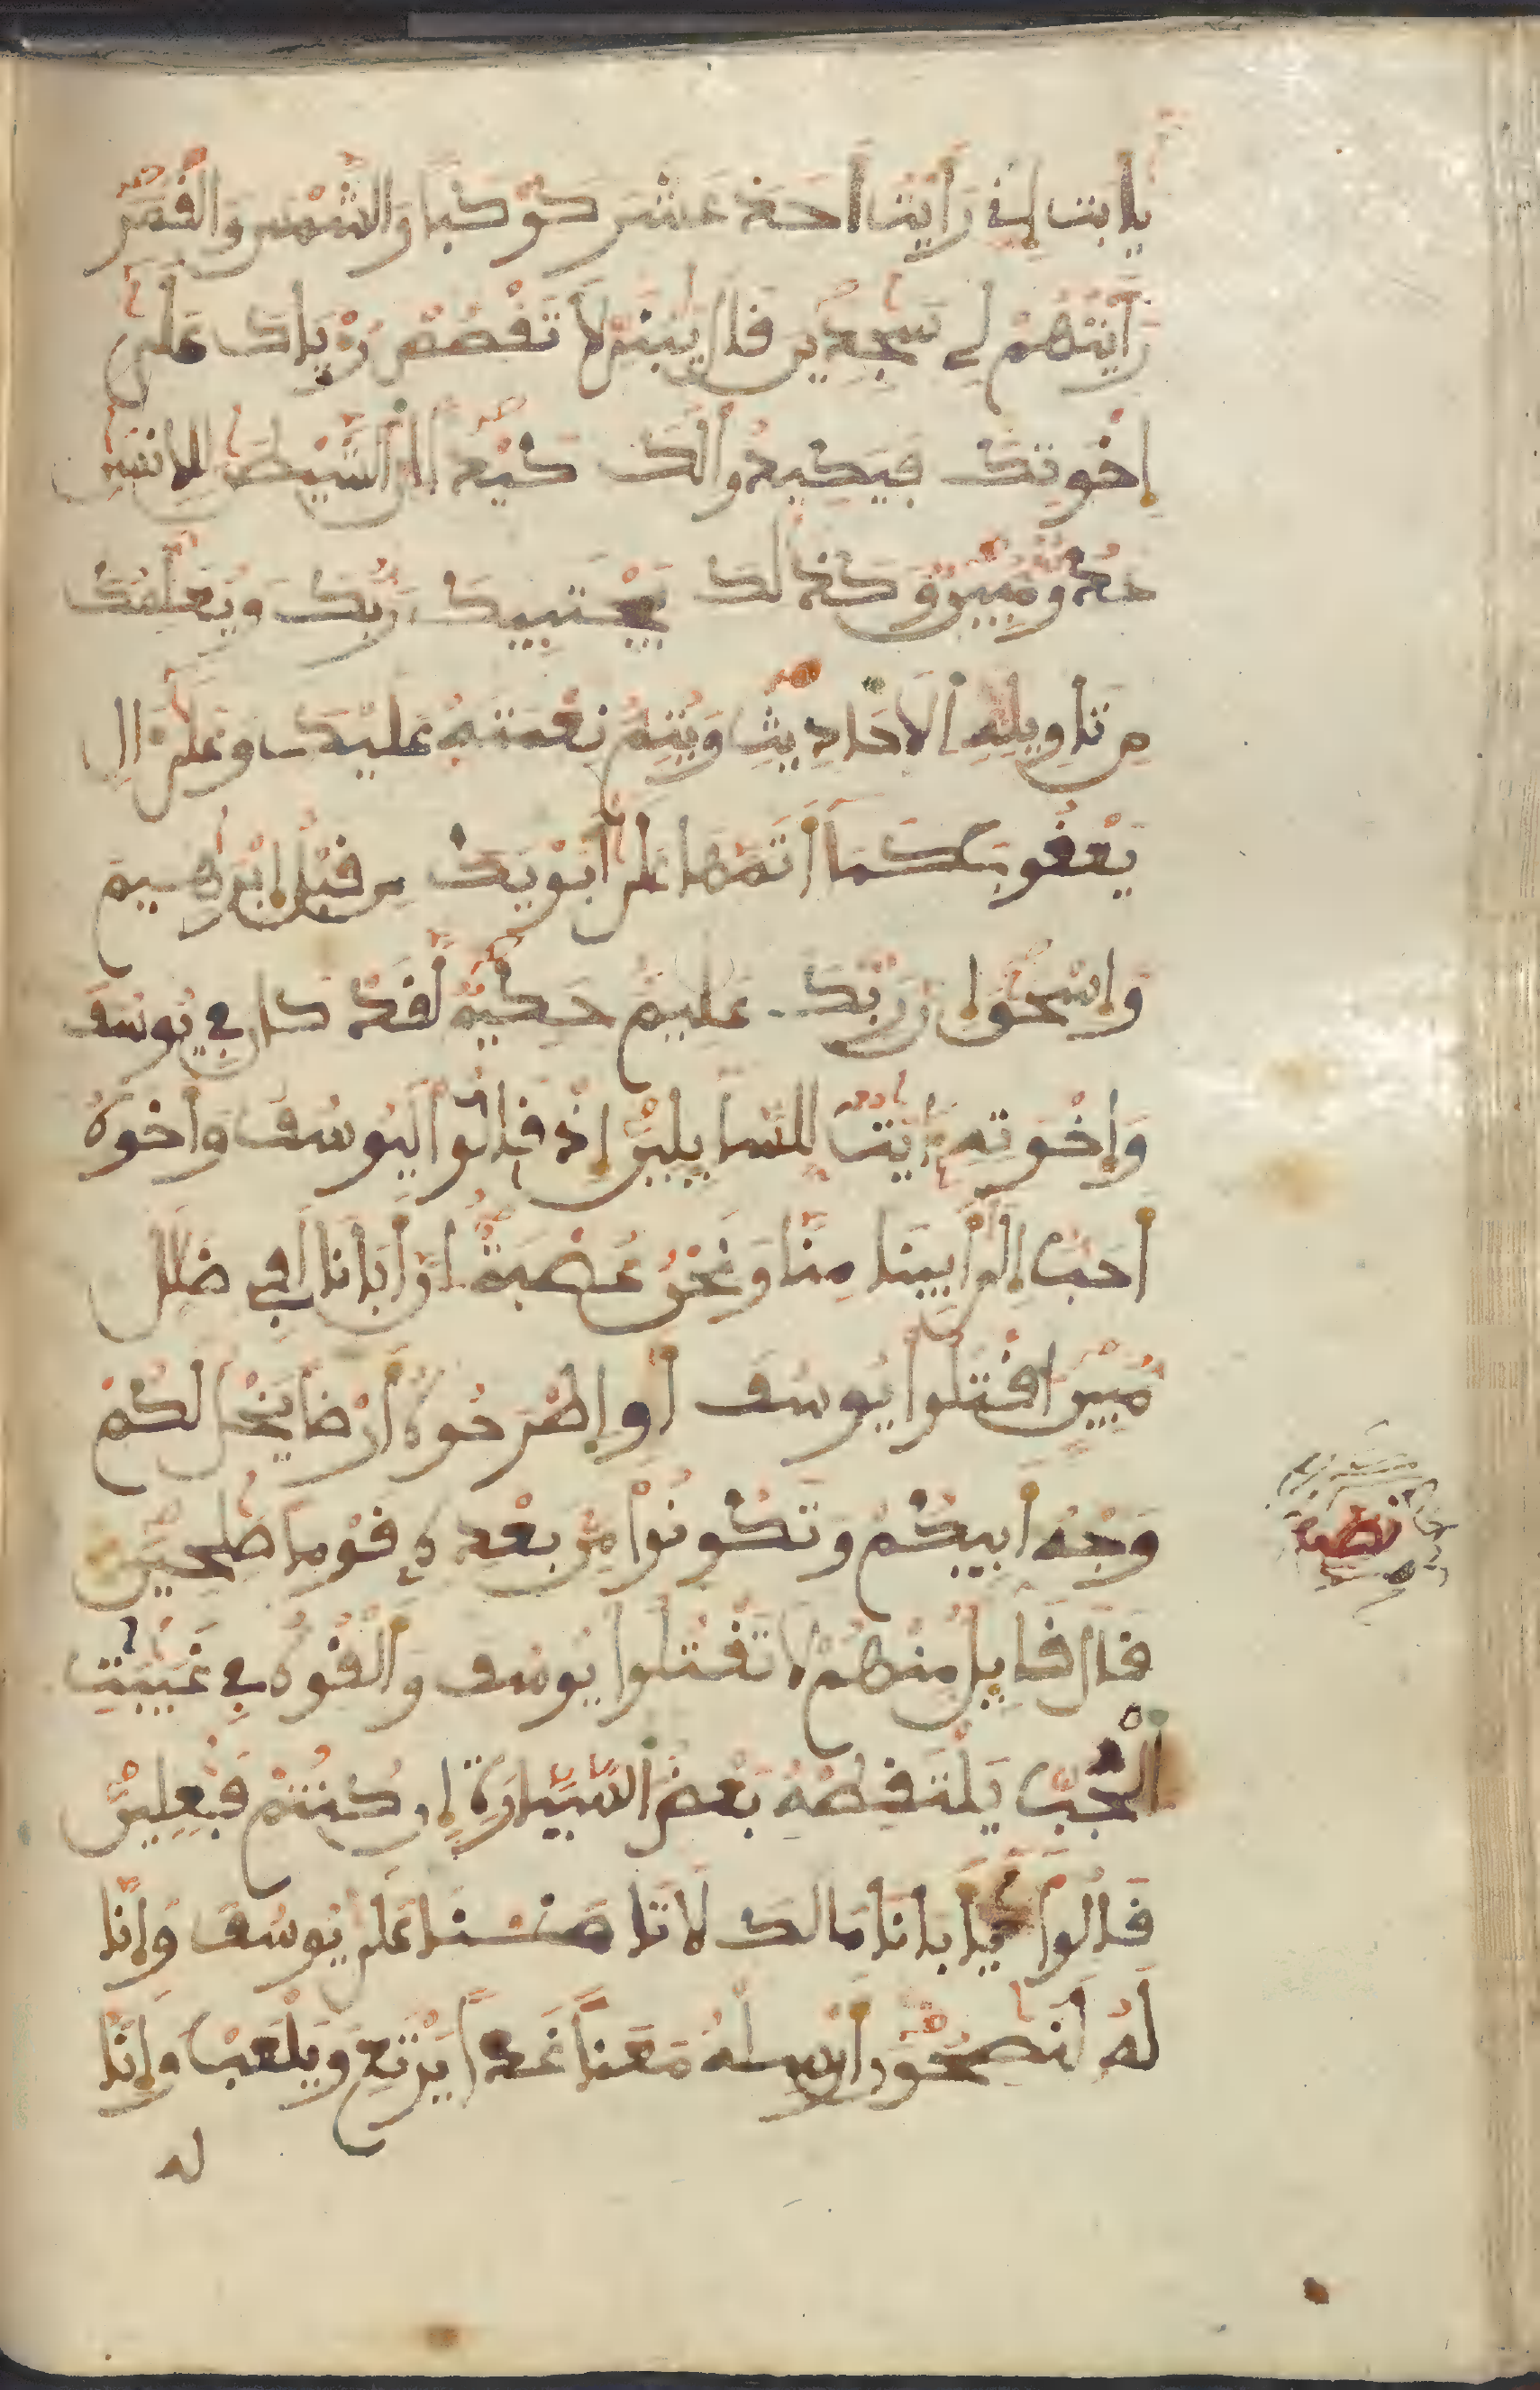 يابت إني رأيت أحد عشر كوكبا والشمس والقمر
رأيتهم لي سجدين قال يبني لا تقصص رءياك على
إخوتك فيكيدوا لك كيدا ان الشيطن للانسن
عدو مبين وكذلك يجتبيك ربك ويعلمك
من تاويل الاحاديث ويتم نعمته عليك وعلى ال
يعقوب كما أتمها على أبويك من قبل إبرهيم
وإسحق إن ربك عليم حكيم لقد كان في يوسف
وإخوته ايت للسايلين إذ قالوا ليوسف وأخوه
أحب إلى أبينا منا ونحن عصبة ان أبانا لفي ضلل
مبين اقتلوا يوسف أو اطرحوه أرضا يخل لكم
وجه أبيكم وتكونوا من بعده قوما صلحين
نصف
قال قايل منهم لا تقتلوا يوسف وألقوه في غيبت
الجب يلتقطه بعض السيارة إن كنتم فعلين
قالوا يابانا مالك لا تامننا على يوسف وإنا
له لنصحون أرسله معنا غدا يرتع ويلعب وإنا
له